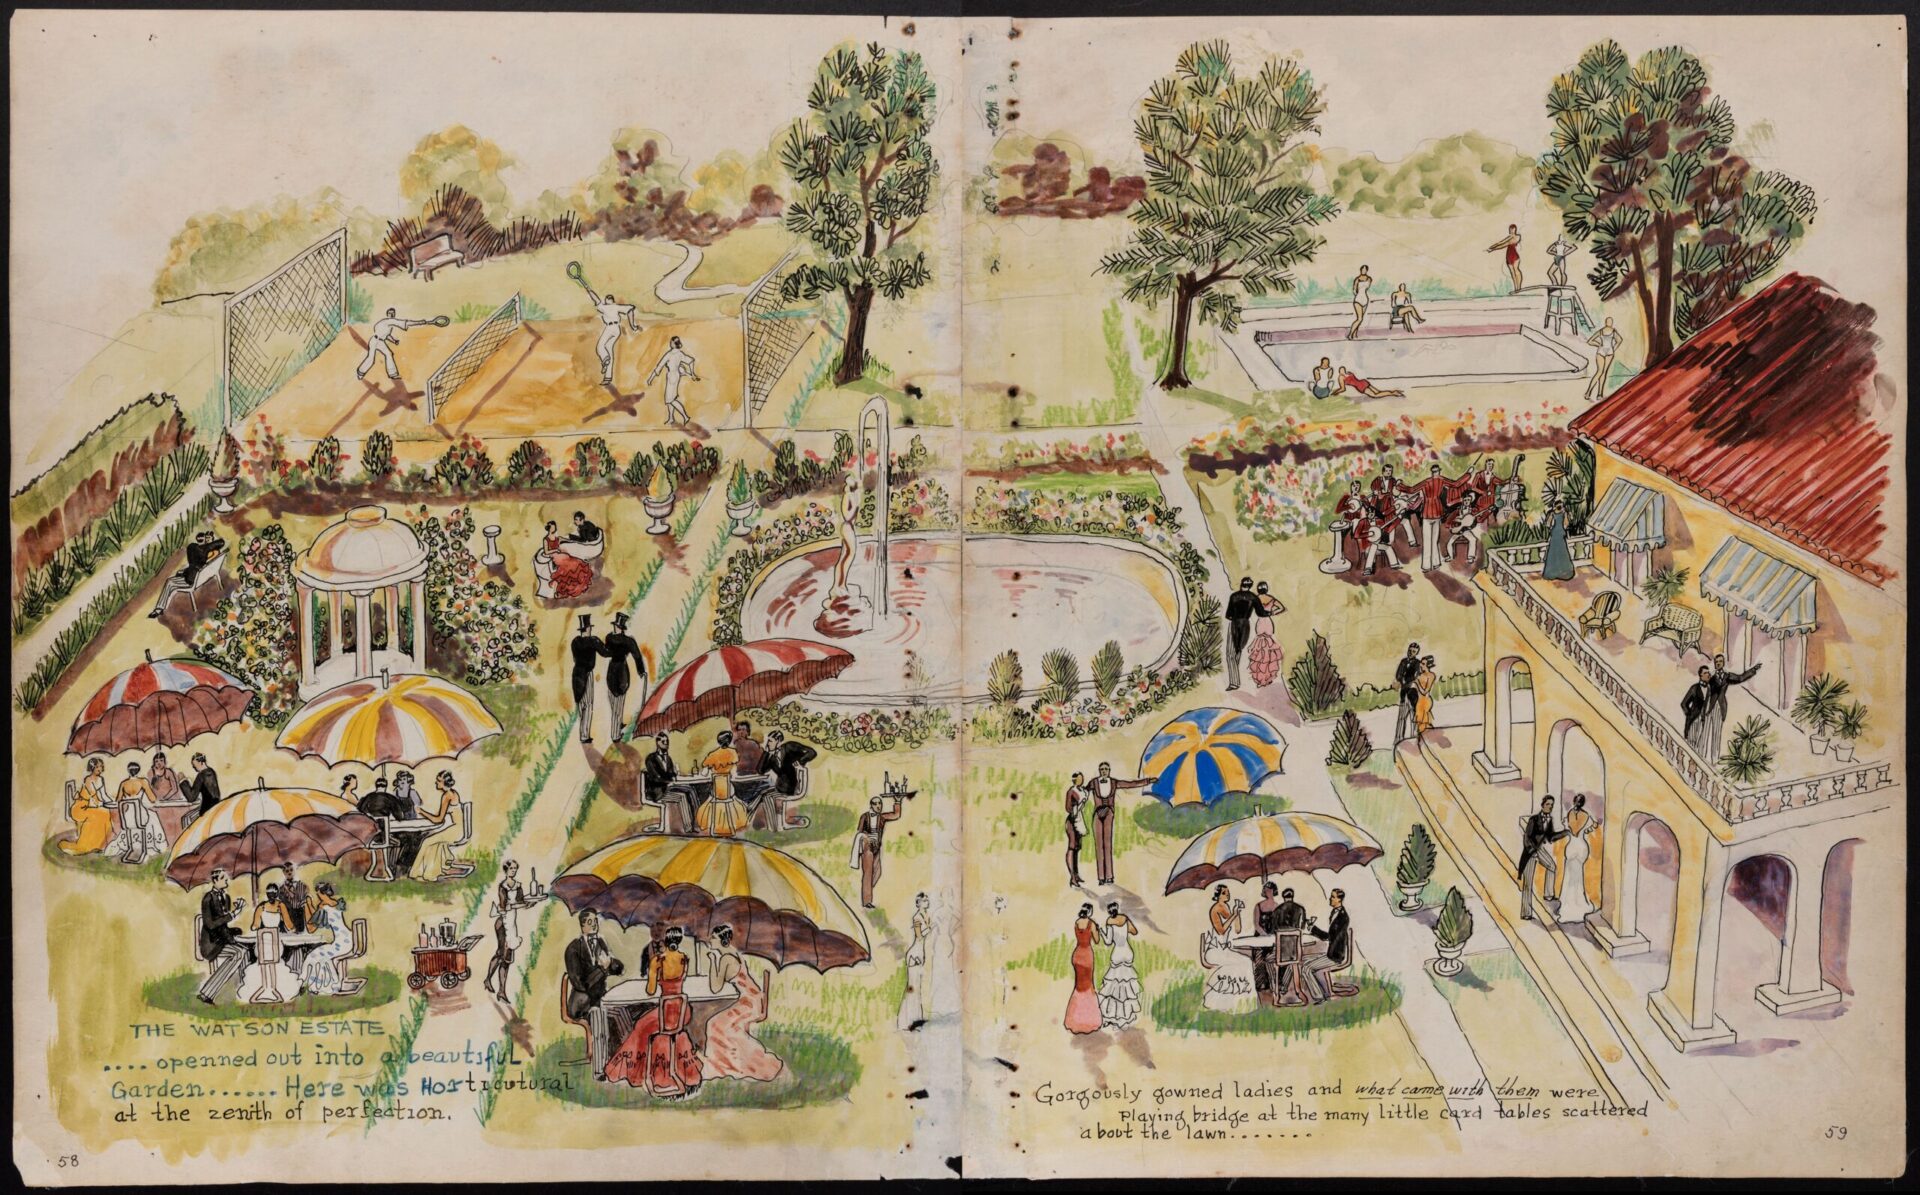 THE WATSON ESTATE
.... openned out into a beautiful
Garden...... Here was Horticutural
at the zenith of perfection.
58
Gorgously gowned ladies and what came with them were
playing bridge at the many little card tables scattered
about the lawn.......
59